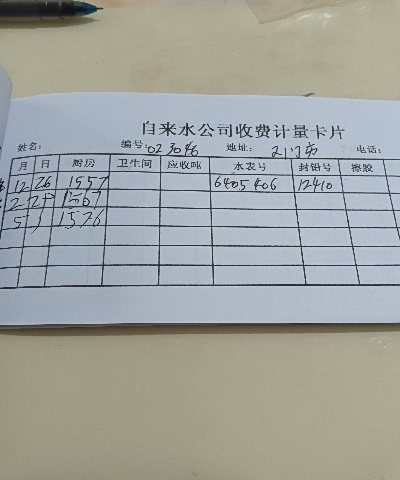 自来水公司收费计量卡片
姓名: 编号:023046 地址: 电话:
月 日 厨房 卫生间 应收吨 水表号 封铅号 擦胶
12 26 1557 6405406 12410
2 1567
5 1576